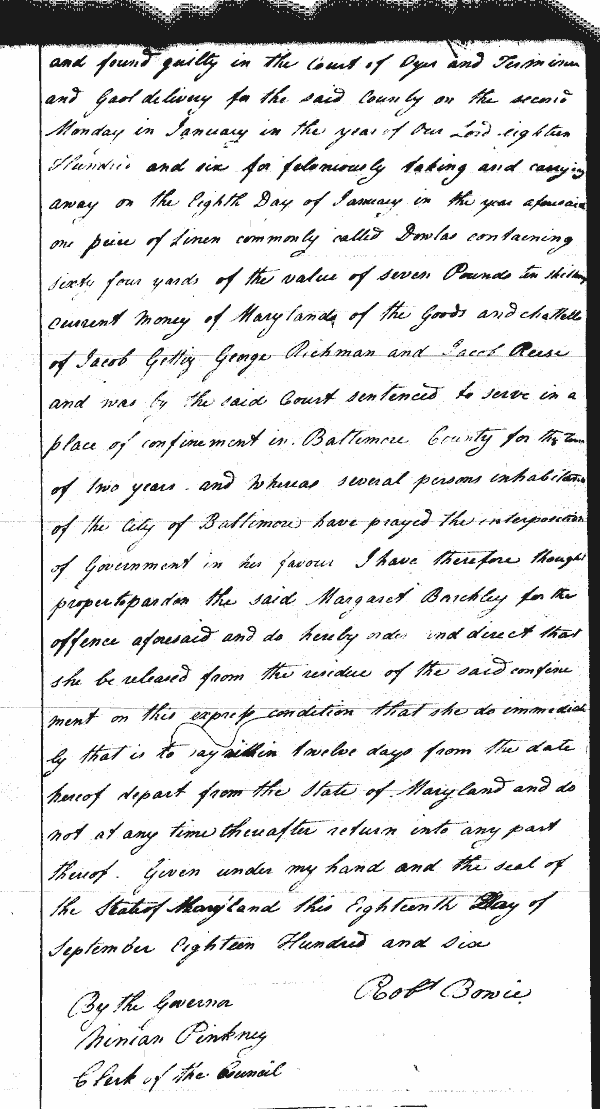 and found guilty in the Court of Oyer and Terminer
and Gaol delivery for the said County on the second
Monday in January in the year of Our Lord eighteen
Hundred and six for feloniously taking and carrying
away on the Eighth Day of January in the year aforesaid
one peice of Linen commonly called Dowlas containing
sixty four yards of the value of seven Pounds ten shillings
current money of Maryland, of the Goods and chattells
of Jacob Getty George Richman and Jacob Reese
and was by the said Court sentenced to serve in a
place of confinement in Baltimore County for the Term
of two years and Whereas several persons inhabitants
of the City of Baltimore have prayed the interposition
of Government in her favour I have therefore thought
proper to pardon the said Margaret Barkley for the
offence aforesaid and do hereby order and direct that
she be released from the residue of the said confine
ment on this express condition that she do immediate
ly that is to say within twelve days from the date
hereof depart from the State of Maryland and do
not at any time thereafter return into any part
thereof. Given under my hand and the seal of
the State of Maryland this Eighteenth Day of
September Eighteen Hundred and six
Robt Bowie
By the Governor
Ninian Pinkney
Clerk of the Council